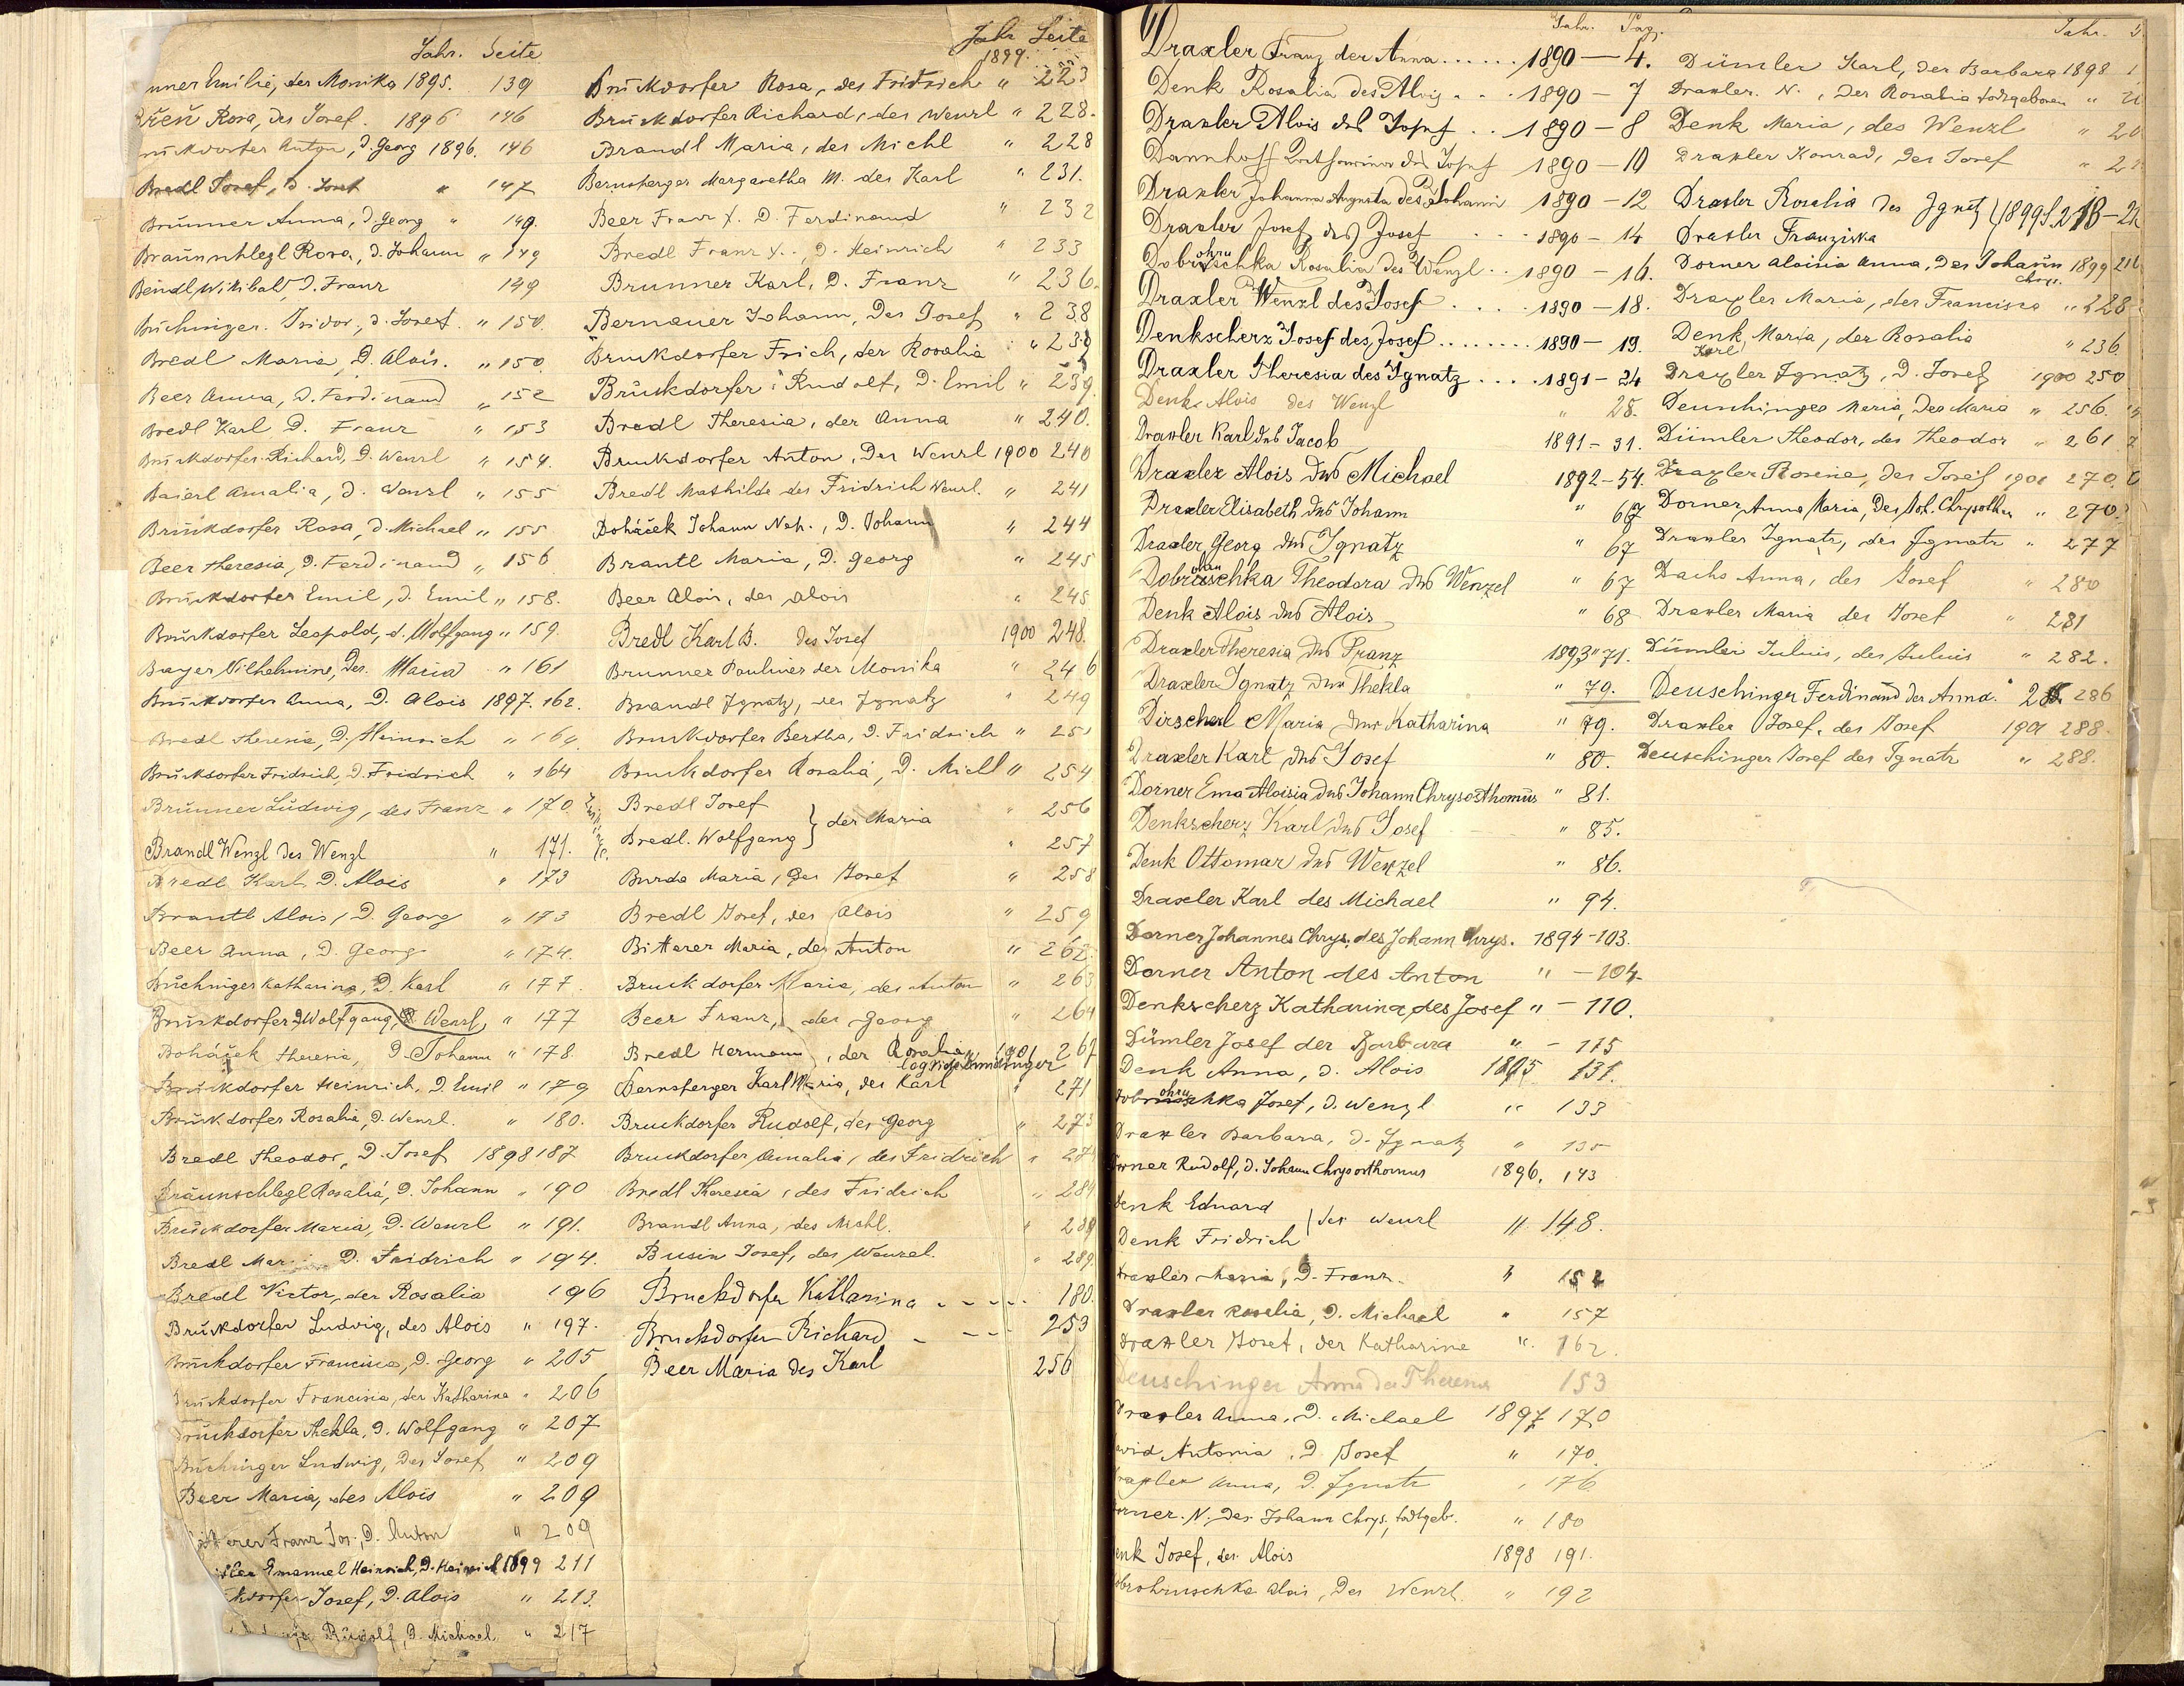 Jahr. Seite
nner Emilie, der Monika 1895. 139
Rosa, des Josef. 1896 146
Anton, d. Georg 1896. 146
Bredl Josef, d. Josef " 147
Brunner Anna, d. Georg " 149.
Braunschlegl Rosa, d. Johann " 149
Beindl Wilibald d. Franz 149
Büchinger Isidor, d. Josef. " 150.
Bredl Maria, D. Alois. " 150.
Beer Anna, d. Ferdinand " 152
Bredl Karl D. Franz " 153
Bruckdorfer Richard, D. Wenzl " 154.
Baierl Amalia, d. Wenzl " 155
Brückdorfer Rosa, d. Michael " 155
Beer Theresia, d. Ferdinand " 156
Brückdorfer Emil, d. Emil " 158.
Brückdorfer Leopold, d. Wolfgang " 159.
Bayer Wilhelmine, der Maria " 161
Brückdorfer Anna, D. Alois 1897. 162.
Bredl Theresie, D. Heinrich " 164
Brückdorfer Fridrich, D. Fridrich " 164
Brünner Ludwig, des Franz " 170
Brandl Wenzl des Wenzl " 171.
Bredl Karl D. Alois " 173
Brantl Alois, D. Georg " 173
Beer Anna, D. Georg " 174.
Büchinger Katharina, D. Karl " 177.
Brückdorfer Wolfgang, Wenzl " 177
Boháček Theresia, D. Johann " 178.
Brückdorfer Heinrich, D. Emil " 179
Brückdorfer Rosalia, D. Wenzl. " 180.
Bredl Theodor, D. Josef 1898 187
Bräunschlegl Rosalia, D. Johann " 190
Brückdorfer Maria, D. Wenzl " 191.
Bredl D. Fridrich " 194.
Bredl Victor, der Rosalia 196
Brückdorfer Ludwig, des Alois " 197.
Brückdorfer Francisca, D. Georg " 205
Brückdorfer Francisca, der Katharina " 206
Brückdorfer Thekla, D. Wolfgang " 207
Büchinger Ludwig, des Josef " 209
Beer Maria, des Alois " 209
erer Franz Jos., D. Anton " 209
Emanuel Heinrich, D. Heinrich 1899 211
kdorfer Josef, D. Alois " 213.
Rudolf, D. Michael " 217
Jahr Seite
1899.
Brückdorfer Rosa, des Fridrich " 223
Brückdorfer Richard, des Wenzl " 228.
Brandl Maria, des Michl " 228
Bernsberger Margaretha M. des Karl " 231.
Beer Franz X. D. Ferdinand " 232
Bredl Franz X., D. Heinrich " 233
Brunner Karl, D. Franz " 236.
Bernauer Johann, des Josef " 238
Bruckdorfer Erich, der Rosalia " 239
Brückdorfer Rudolf, D. Emil " 239.
Bredl Theresia, der Anna " 240.
Bruckdorfer Anton, des Wenzl 1900 240
Bredl Mathilde des Fridrich Wenzl. " 241
Boháček Johann Nep., D. Johann " 244
Brantl Maria, D. Georg " 245
Beer Alois, des Alois " 245
Bredl Karl B. des Josef 1900 248.
Brunner Pauline der Monika " 246
Brandl Ignatz, des Ignatz " 249
Bruckdorfer Bertha, D. Fridrich " 251
Bruckdorfer Rosalia, D. Michl " 254
Bredl Josef " 256
} der Maria
Bredl. Wolfgang " 257
Burda Maria, des Josef " 258
Bredl Josef, des Alois " 259
Bitterer Maria, des Anton " 262.
Bruckdorfer Maria, des Anton " 263
Beer Franz, des Georg " 264
Bredl Hermann, der Rosalia 1901 267
Bernsberger Karl Maria, des Karl " 271
Bruckdorfer Rudolf, des Georg " 273
Bruckdorfer Amalia, des Fridrich " 274
Bredl Theresia, des Fridrich " 284
Brandl Anna, des Michl. " 289
Busin Josef, des Wenzel. " 289.
Bruckdorfer Katharina - - - - 180.
Bruckdorfer Richard - - - 253
Beer Maria des Karl 256
D
Jahr. Pag.
Draxler Franz der Anna ...... 1890 — 4.
Denk Rosalia des Alois ... 1890 — 7
Draxler Alois des Josef .. 1890 — 8
Dannhoff des Josef 1890 — 10
Draxler Johanna Augusta des Johann 1890 — 12
Draxler Josef des Josef ... 1890 — 14
ohru
Dobruschka Rosalia des Wenzl .. 1890 — 16.
Draxler Wenzl des Josef .... 1890 — 18.
Denkscherz Josef des Josef ........ 1890 — 19.
Draxler Theresia des Ignatz .... 1891 — 24
Denk Alois des Wenzl " 28.
Draxler Karl des Jacob 1891 - 31.
Draxler Alois des Michael 1892 - 54.
Draxler Elisabeth des Johann " 67
Draxler Georg des Ignatz " 67
Dobruschka Theodora des Wenzel " 67
Denk Alois des Alois " 68
Draxler Theresia des Franz 1893 " 71.
Draxler Ignatz der Thekla " 79.
Dirscherl Maria der Katharina " 79.
Draxler Karl des Josef " 80.
Dorner Ema Aloisia des Johann Chrysosthomus " 81.
Denkscherz Karl des Josef " 85.
Denk Ottomar des Wenzel " 86.
Draxler Karl des Michael " 94.
Dorner Johannes Chrys. des Johann Chrys. 1894 - 103.
Dorner Anton des Anton " - 104.
Denkscherz Katharina des Josef " - 110.
Dümler Josef der Barbara " - 115
Denk Anna, d. Alois 1895 131.
ohru
Dobruschka Josef, d. Wenzl " 133
Draxler Barbara, d. Ignatz " 135
orner Rudolf, d. Johann Chrysosthomus 1896. 143
Denk Eduard
} des Wenzl " 148.
Denk Fridrich
Draxler Maria, D. Franz. " 152
Draxler Rosalia, D. Michael " 157
Draxler Josef, der Katharina " 162.
Deuschinger Anna der Theresia 153
Draxler Anna, D. Michael 1897 170
avid Antonia, D. Josef " 170.
raxler Anna, D. Ignatz " 176
orner. N. des Johann Chrys. todtgeb. " 180
enk Josef, des Alois 1898 191.
obrohruschka Alois, des Wenzl. " 192
Jahr. S.
Dümler Karl, der Barbara 1898
Draxler. N., der Rosalia todtgeboren "
Denk Maria, des Wenzl "
Draxler Konrad, des Josef "
Draxler Rosalia des Ignatz } 1899
Draxler Franziska
Dorner Aloisia Anna, des Johann Chrys. 1899
Draxler Maria, der Francisca " 228
Denk Maria, der Rosalia " 236.
Karl
Draxler Ignatz, D. Josef 1900 250
Deuschinger Maria, der Maria " 256.
Dümler Theodor, des Theodor " 261
Draxler Rosina, des Josef 1901 270
Dorner Anna Maria, des Joh. Chrysosth. " 270.
Draxler Ignatz, des Ignatz " 277
Dachs Anna, des Josef " 280
Draxler Maria des Josef " 281
Dümler Julius, des Julius " 282.
Deuschinger Ferdinand der Anna. 286
Draxler Josef, des Josef 1901 288.
Deuschinger Josef des Ignatz " 288.